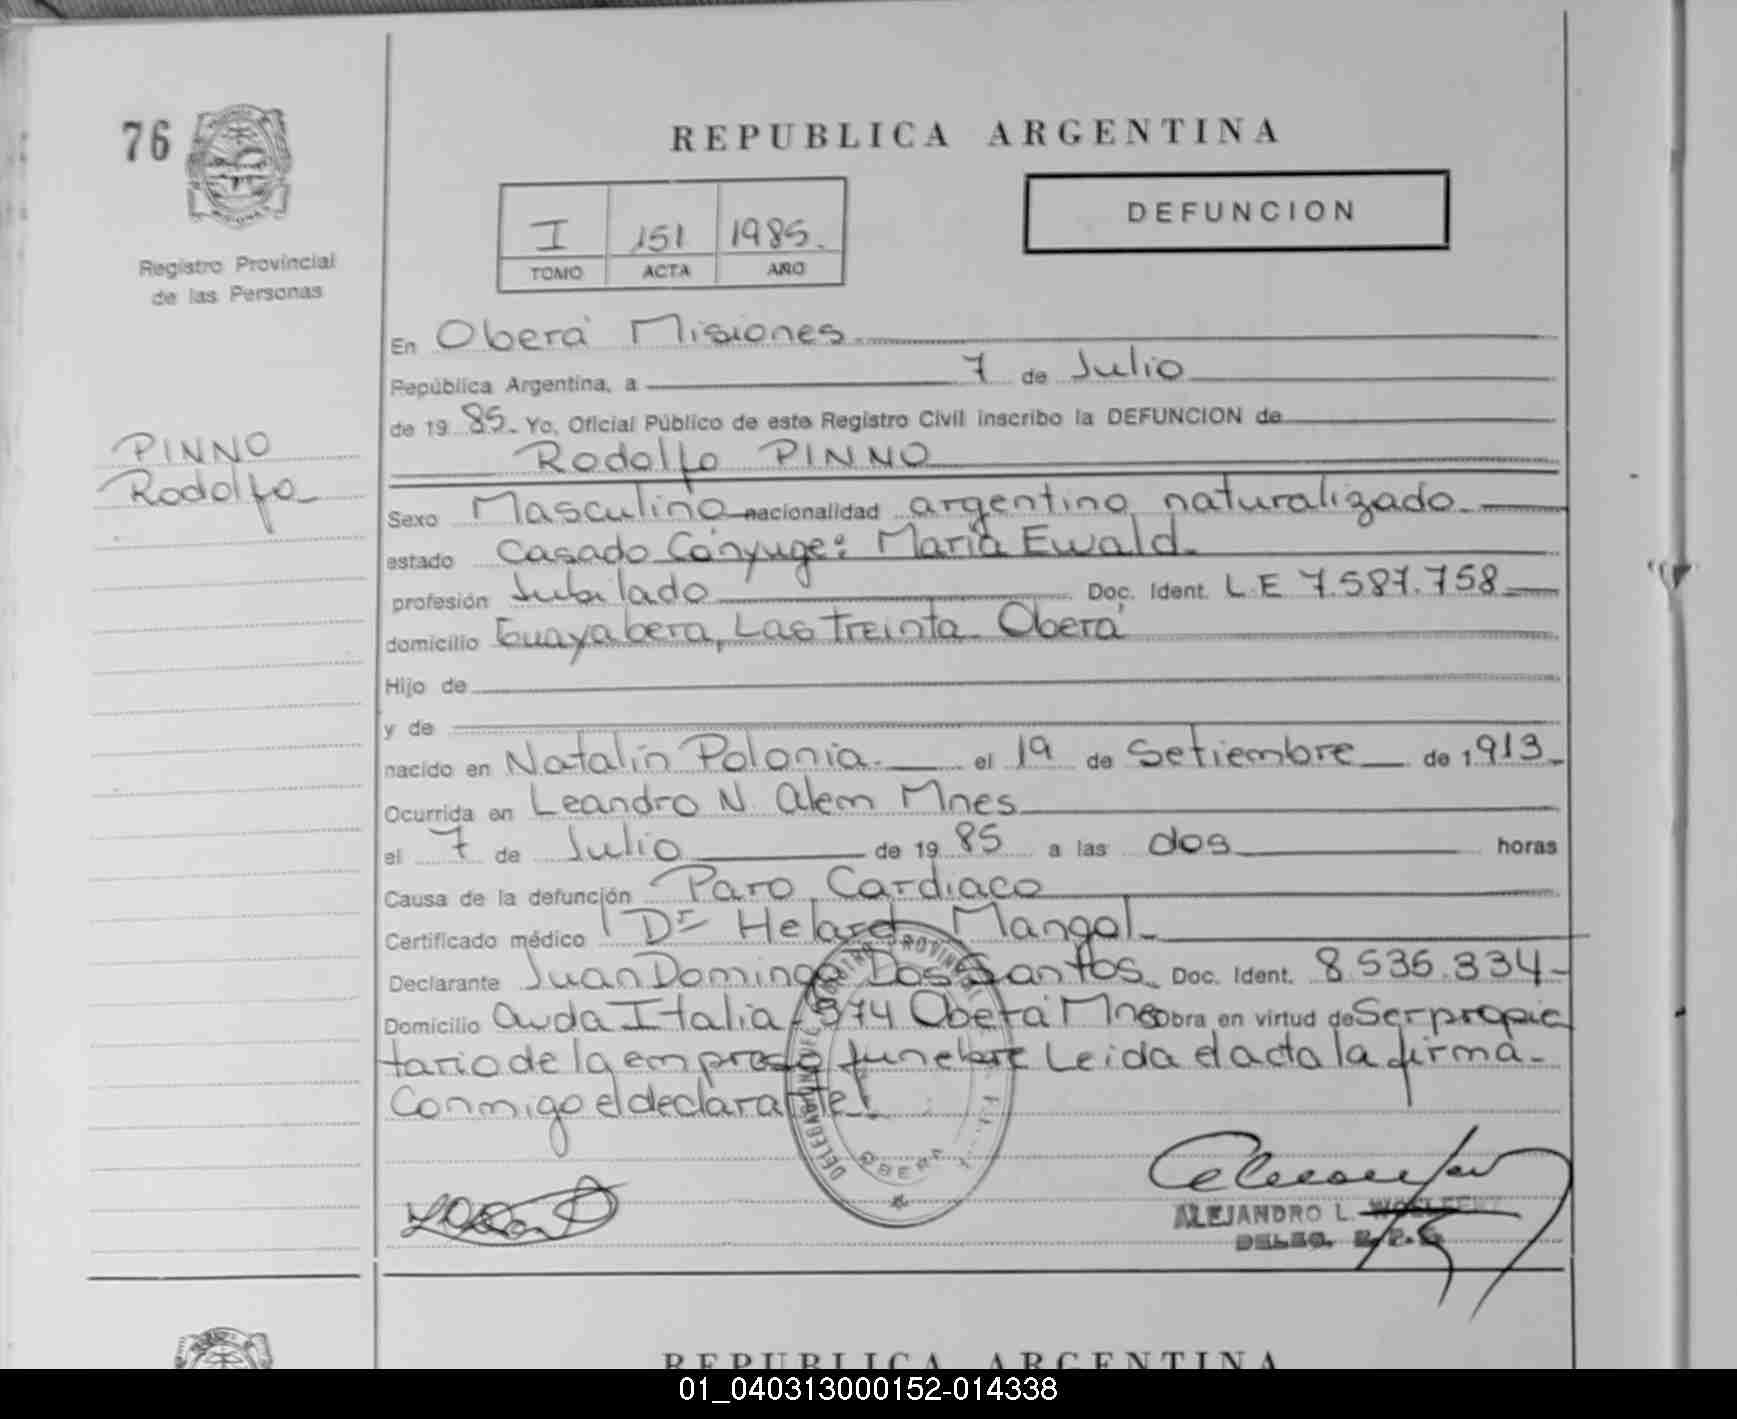 76
REPUBLICA ARGENTINA
DEFUNCION
I 151 1985.
TOMO ACTA AÑO
Registro Provincial
de las Personas
PINNO
Rodolfo
En Oberá Misiones
República Argentina, a 7 de Julio
de 19 85. Yo, Oficial Público de este Registro Civil inscribo la DEFUNCION de
Rodolfo PINNO
Sexo Masculino nacionalidad argentino naturalizado.
estado Casado Cónyuge: Maria Ewald.
profesión Jubilado Doc. Ident. L.E 7.587.758
domicilio Guayabera, Las Treinta Oberá
Hijo de
y de
nacido en Natalin Polonia. el 19 de Setiembre de 1913
Ocurrida en Leandro N. Alem Mnes
el 7 de Julio de 19 85 a las dos horas
Causa de la defunción Paro Cardiaco
Certificado médico Dr Helard Mangol
Declarante Juan Domingo Dos Santos. Doc. Ident. 8.535.334
Domicilio avda Italia 974 Oberá Mnes obra en virtud de Ser propie
tario de la empresa funebre Leida el acta la firma
Conmigo el declarante.
OBERA
ALEJANDRO L.
DELEG. R.P.
REPUBLICA ARGENTINA
01_040313000152-014338